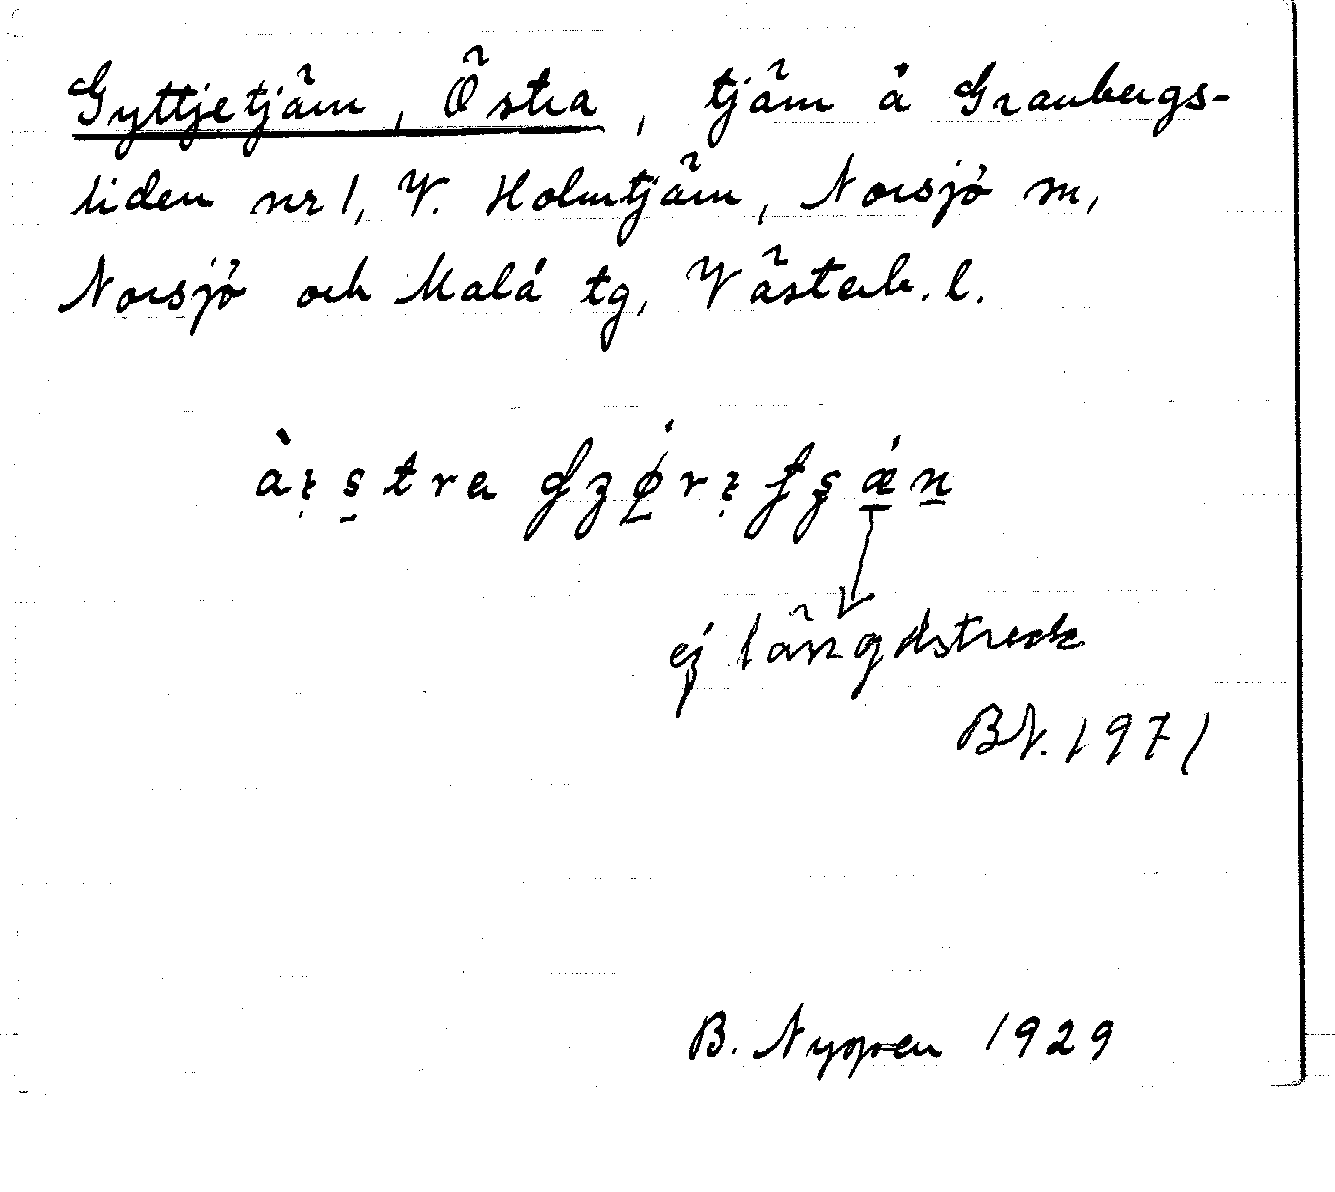 Gyttjetjärn, Östra, tjärn å Granbergs-
liden nr 1, V. Holmtjärn, Norsjö sn,
Norsjö och Malå tg, Västerb. l.
ej längdstreck
BN. 1971
B. Nygren 1929